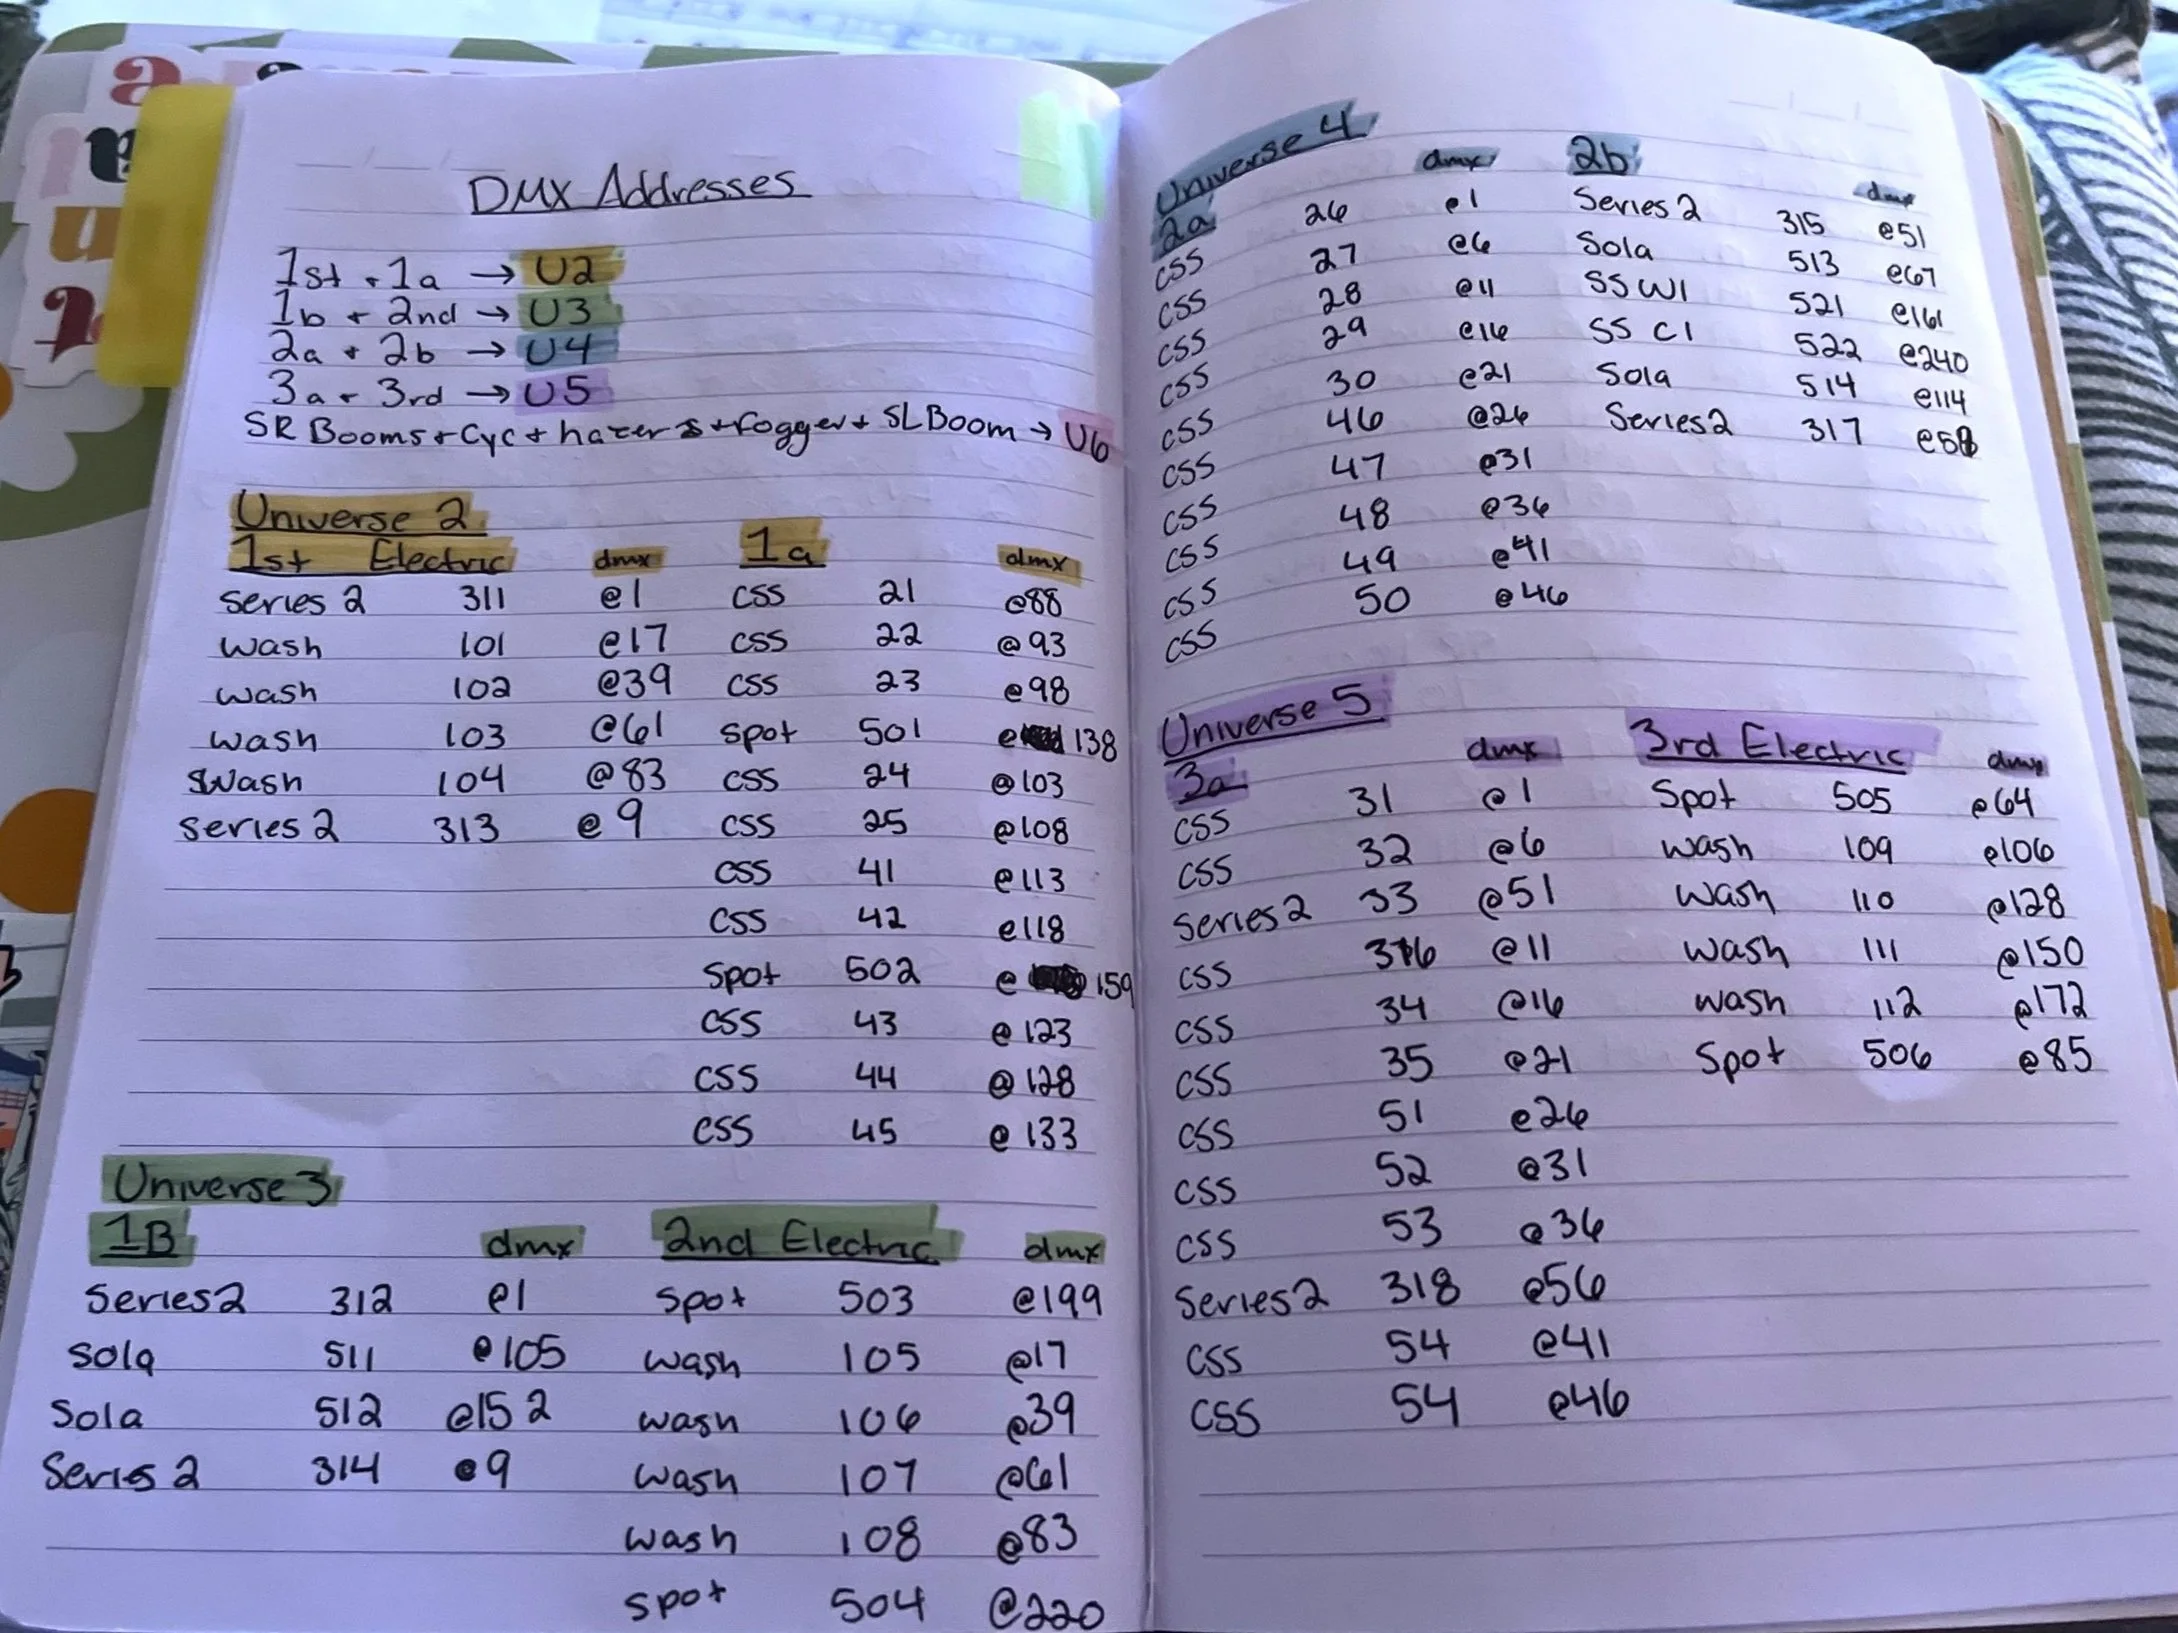 DMX Addresses
1st + 1a → U2
1b + 2nd → U3
2a + 2b → U4
3a + 3rd → U5
SR Booms + Cyc + hazers + fogger + SL Boom → U6
Universe 2
1st Electric dmx 1a dmx
series 2 311 @1 CSS 21 @88
wash 101 @17 CSS 22 @93
wash 102 @39 CSS 23 @98
wash 103 @61 spot 501 @ 138
wash 104 @83 CSS 24 @103
series 2 313 @9 CSS 25 @108
CSS 41 @113
CSS 42 @118
Spot 502 @ 159
CSS 43 @123
CSS 44 @128
CSS 45 @133
Universe 3
1B dmx 2nd Electric dmx
Series 2 312 @1 Spot 503 @199
Sola 511 @105 wash 105 @17
Sola 512 @152 wash 106 @39
Series 2 314 @9 wash 107 @61
wash 108 @83
spot 504 @220
Universe 4
2a dmx 2b dmx
CSS 26 @1 Series 2 315 @51
CSS 27 @6 Sola 513 @67
CSS 28 @11 SS W1 521 @161
CSS 29 @16 SS C1 522 @240
CSS 30 @21 Sola 514 @114
CSS 46 @26 Series 2 317 @58
CSS 47 @31
CSS 48 @36
CSS 49 @41
CSS 50 @46
Universe 5
3a dmx 3rd Electric dmx
CSS 31 @1 Spot 505 @64
CSS 32 @6 wash 109 @106
Series 2 33 @51 wash 110 @128
CSS 316 @11 wash 111 @150
CSS 34 @16 wash 112 @172
CSS 35 @21 Spot 506 @85
CSS 51 @26
CSS 52 @31
CSS 53 @36
Series 2 318 @56
CSS 54 @41
CSS 54 @46